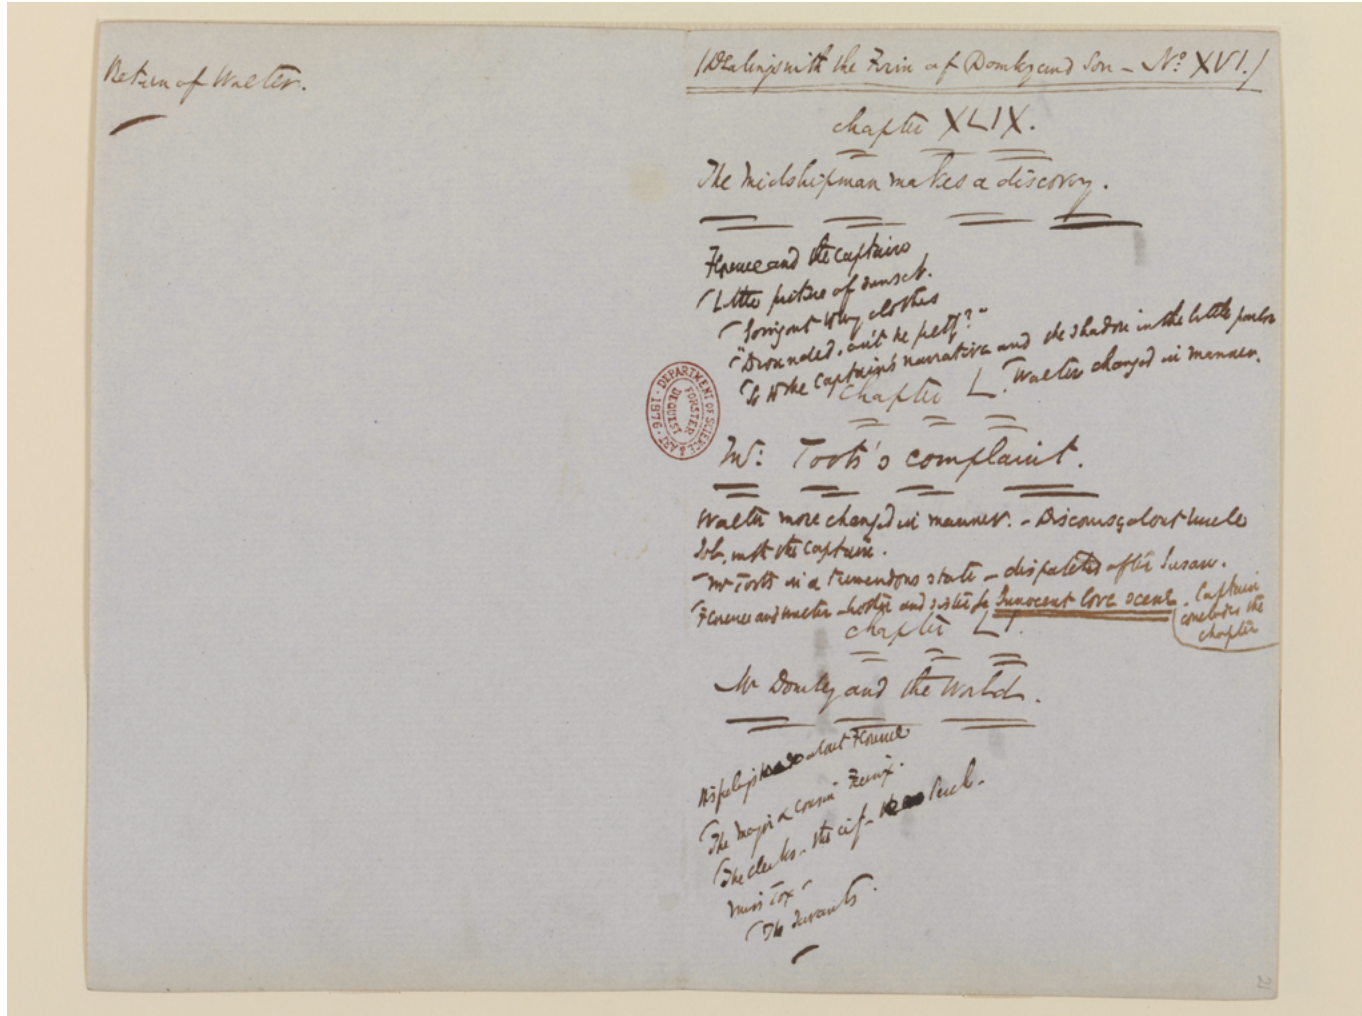 Return of Walter.
(Dealings with the Firm of Dombey and Son – No. XVI.)
chapter XLIX.
The Midshipman makes a discovery.
Florence and the Captain
Little picture of sunset.
Going out to buy clothes
"Drownded. ain't he pretty?"
So to the Captain's narrative and the shadow in the little parlor
Walter changed in manner.
chapter L.
Mr. Toots's complaint.
Walter more changed in manner. – Discourse about Uncle
Sol, with the Captain.
Mr Toots in a tremendous state – dispatched after Susan.
Florence and Walter – brother and sister Innocent love scene. Captain
concludes the
chapter
chapter LI.
Mr Dombey and the World.
His feelings about Florence
The Major & Cousin Feenix.
The clerks – the
Miss Tox
The Servants.
DEPARTMENT OF SCIENCE & ART · 1876 ·
FORSTER
BEQUEST
21